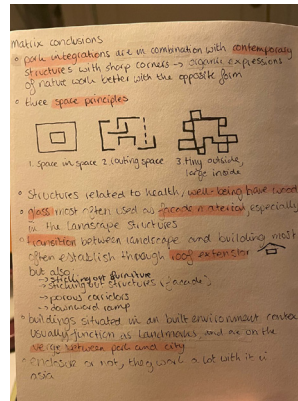 matrix conclusions
o park integrations are in combination with contemporary
structures with sharp corners → organic expressions
of nature work better with the opposite form
o three space principles
1. space in space 2. routing space 3. tiny outside,
large inside
o structures related to health, well-being have wood
o glass most often used as facade material, especially
in the landscape structures
o transition between landscape and building most
often establish through roof extension
but also
→ sticking out furniture
→ sticking out structures (facade)
→ porous corridors
→ downward ramp
o buildings situated in an built environment
usually function as landmarks, and are on the
verge between park and city
o enclosure or not, they work a lot with it in
asia